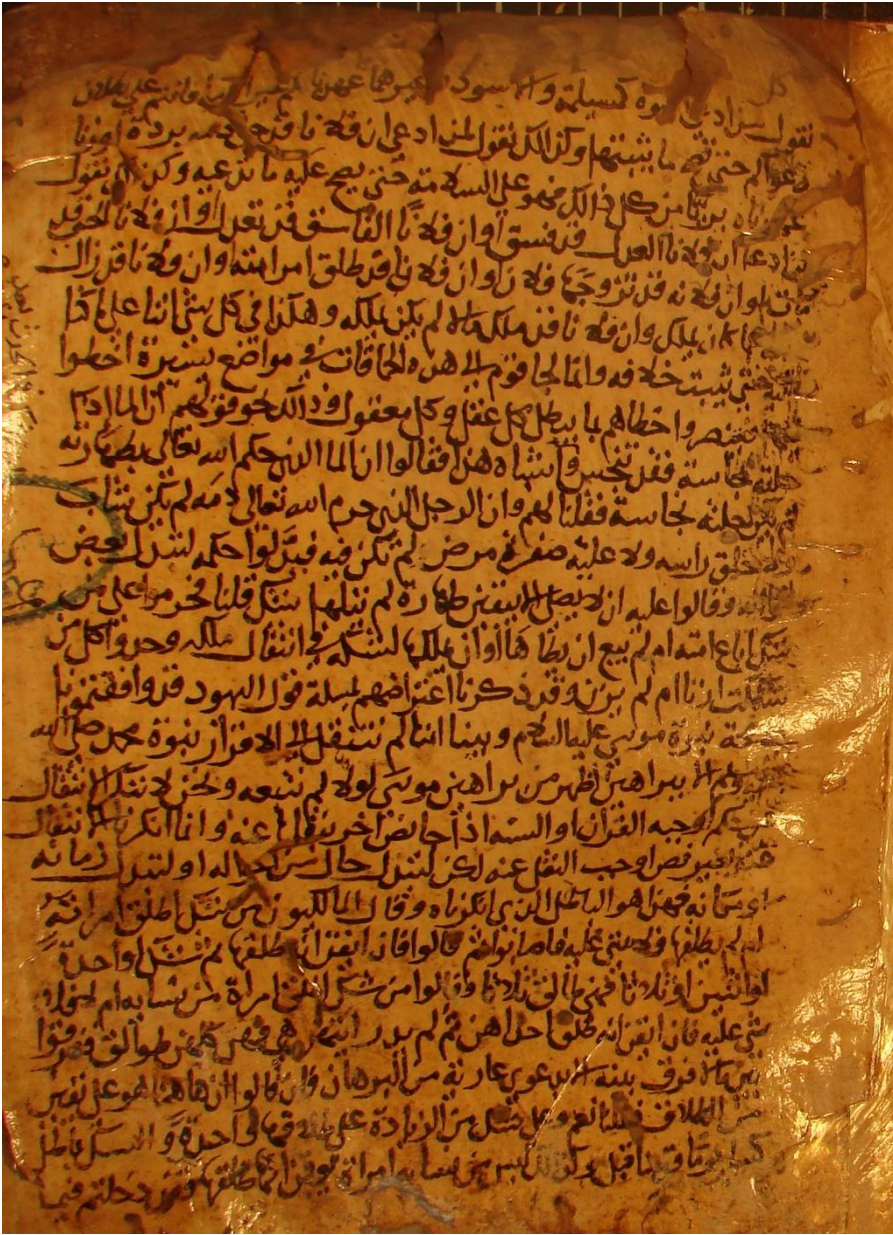 كل
نقول من ادعى نبوة كمسيلمة والاسود وغيرهما عهدنا غير انبيا فانتم على بطلان
دعواكم حتى يصح ما يثبتها وكذلك نقول لمن ادعى ان فلانا قد حل دمه بردة او زنا
عهدناه بريا من كل ذلك فهو على السلامة حتى يصح عليه ما تدعيه وكذلك نقول
لمن ادعا ان فلانا العدل قد فسق او ان فلانا الفاسق قد تعدل او ان فلانا الحي قد
مات او ان فلانه قد تزوجها فلان او ان فلانا قد طلق امراته وان فلانا قد زال
ملكه عما كان يملك وان فلانا قد ملك ما لم يكن يملكه وهكذا في كل شي اننا على ما كنا
عليه حتى يثبت خلافه وانما لجا قوم الى هذه الحماقات في مواضع يسيرة اخطوا
فيها فنصروا خطاهم بما يبطل كل عقل وكل معقول وذلك نحو قولهم ان الما اذا
حلته نجاسة فقد تنجس وما اشباه هذا فقالوا ان الما الذي حكم الله تعالى بطهارته
لم تكن تحله نجاسة فقلنا لهم وان الرجل الذي حرم الله تعالى دمه لم يكن شاب
ولا حلق راسه ولا عليه صفرة مرض لم تكن فيه فبدلوا حكمه لتبدل بعض
احواله وقالوا عليه ان لا يصلي الا بيقين طهارة لم يتلها شك قلنا فحرموا على من
شك اباع امته ام لم يبع ان يطاها او ان يملكها لشكه في انتقال ملكه وحدوا كل من
شككت ازنا ام لم يزن وقد ذكرنا اعتراضهم بمسلة قول اليهود قد وافقتمونا
على صحة نبوة موسى عليه السلام وبينا اننا لم ننتقل الى الاقرار بنبوة محمد صلى الله
عليه وسلم الا ببراهين اظهر من براهين موسى لولاها لم نتبعه ونحن لا ننكر الانتقال
من حكم اوجبه القران او السنه اذا جا نص اخر ينقلنا عنه وانما انكرنا الانتقال
عنه بغير نص اوجب النقل عنه لكن لتبدل حال من احواله او لتبدل زمانه
او مكانه فهذا هو الباطل الذي انكرناه وقال المالكيون من شك اطلق امراته
ام لم يطلقها فلا شي عليه فاصابوا ثم قالوا فان ايقن انه طلقها ثم شك اواحدة
او اثنين او ثلاثا فهي طالق ثلاثا وقالوا من شك اطلق امراة من نسايه ام لا فلا
شي عليه فان ايقن انه طلق احداهن ثم لم يدر ايتهن هي فهن كلهن طوالق ففرقوا
بين ما لا فرق بينه الا بدعوى عارية من البرهان فان قالوا ان هاهنا هو على يقين
من الطلاق قلنا نعم وعلى شك من الزيادة على طلاقها واحدة والشك باطل
كما هو فيما قد قلنا قبل وكذلك ليس من نسايه امراة يوقن انه طلقها فقد دخلتم فيما